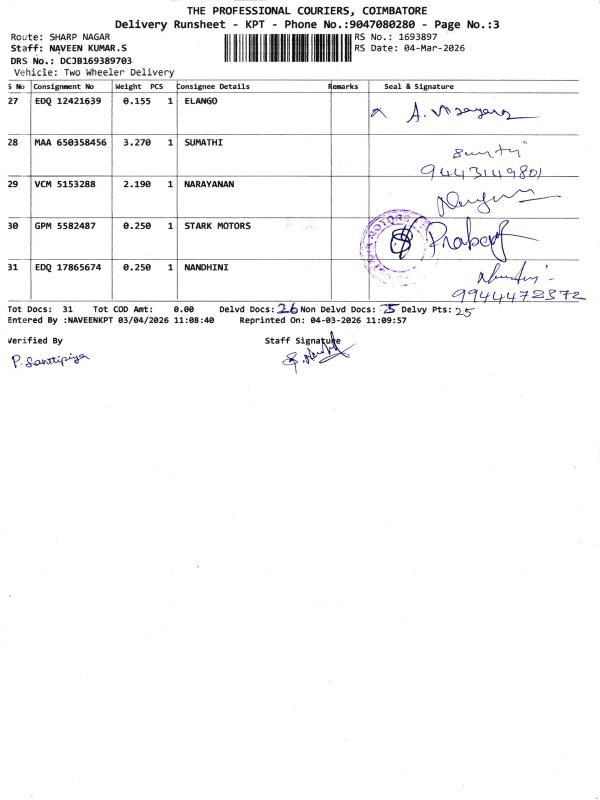 THE PROFESSIONAL COURIERS, COIMBATORE
Delivery Runsheet - KPT - Phone No.:9047080280 - Page No.:3
Route: SHARP NAGAR RS No.: 1693897
Staff: NAVEEN KUMAR.S RS Date: 04-Mar-2026
DRS No.: DCJB169389703
Vehicle: Two Wheeler Delivery
S No Consignment No Weight PCS Consignee Details Remarks Seal & Signature
27 EDQ 12421639 0.155 1 ELANGO
28 MAA 650358456 3.270 1 SUMATHI
9443149801
29 VCM 5153288 2.190 1 NARAYANAN
30 GPM 5582487 0.250 1 STARK MOTORS
31 EDQ 17865674 0.250 1 NANDHINI
9944472372
Tot Docs: 31 Tot COD Amt: 0.00 Delvd Docs: 26 Non Delvd Docs: 5 Delvy Pts: 25
Entered By :NAVEENKPT 03/04/2026 11:08:40 Reprinted On: 04-03-2026 11:09:57
Verified By Staff Signature